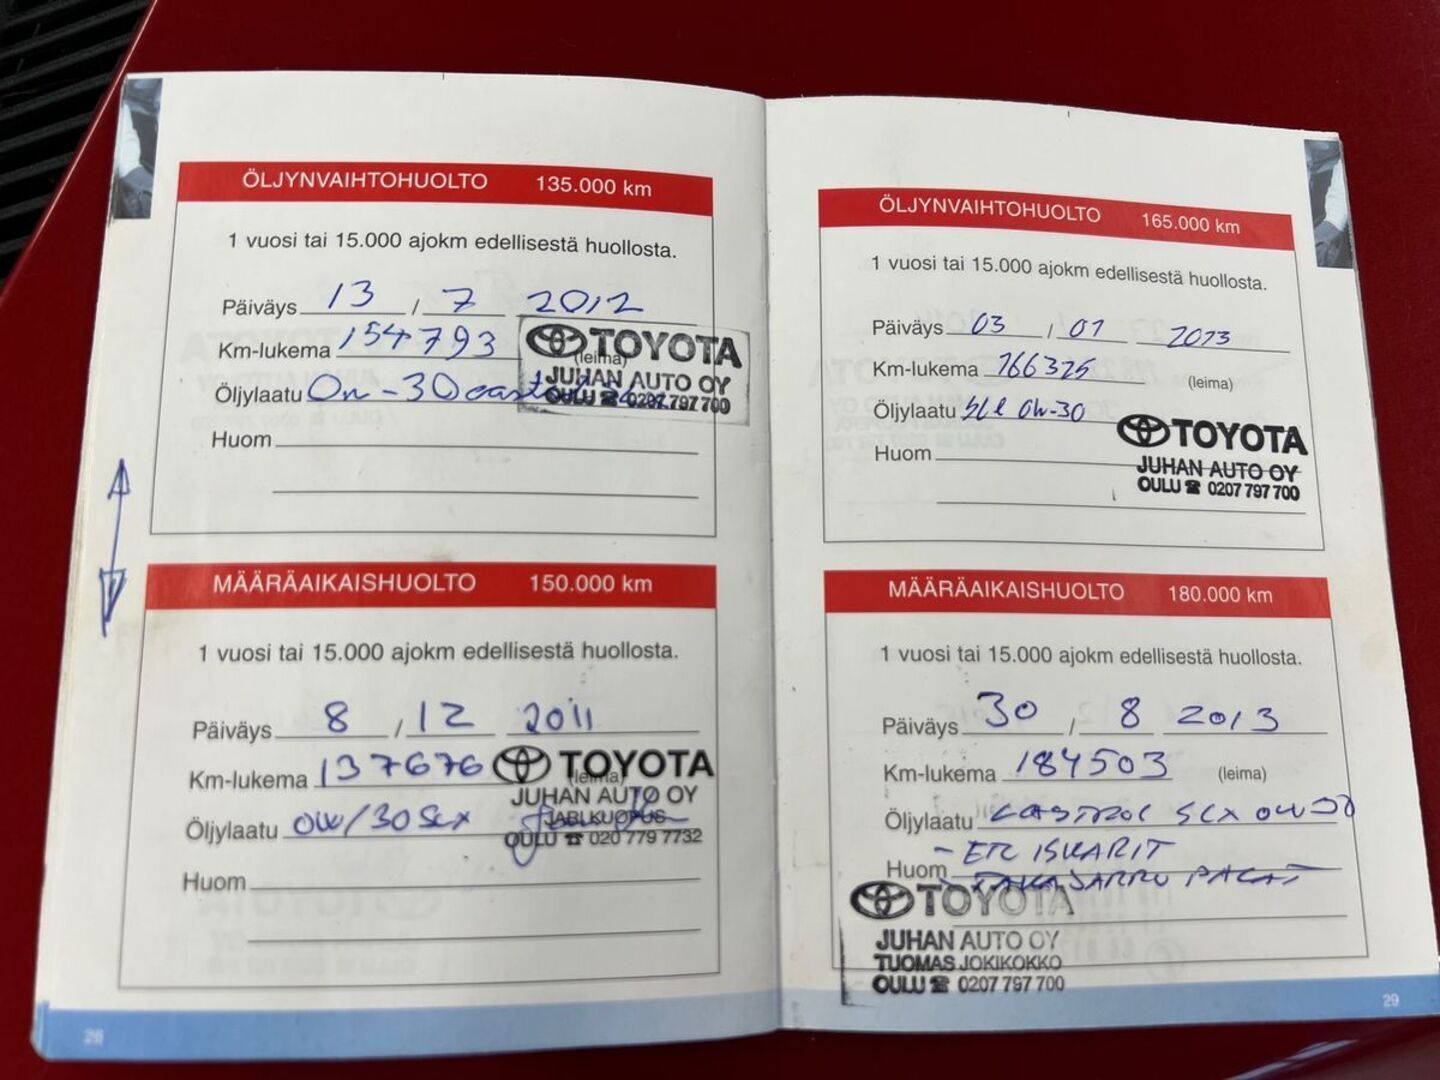 ÖLJYNVAIHTOHUOLTO 135.000 km
1 vuosi tai 15.000 ajokm edellisestä huollosta.
Päiväys 13 / 7 2012
Km-lukema 154793 (leima)
TOYOTA
JUHAN AUTO OY
OULU ☎ 0207 797 700
Öljylaatu 0w-30
Huom
MÄÄRÄAIKAISHUOLTO 150.000 km
1 vuosi tai 15.000 ajokm edellisestä huollosta.
Päiväys 8 / 12 2011
Km-lukema 137676 (leima)
TOYOTA
JUHAN AUTO OY
OULU ☎ 020 779 7732
Öljylaatu 0W/30 SLX
Huom
28
ÖLJYNVAIHTOHUOLTO 165.000 km
1 vuosi tai 15.000 ajokm edellisestä huollosta.
Päiväys 03 / 01 2013
Km-lukema 166325 (leima)
Öljylaatu 0W-30
TOYOTA
JUHAN AUTO OY
OULU ☎ 0207 797 700
Huom
MÄÄRÄAIKAISHUOLTO 180.000 km
1 vuosi tai 15.000 ajokm edellisestä huollosta.
Päiväys 30 / 8 2013
Km-lukema 184503 (leima)
Öljylaatu CASTROL SLX 0W30
Huom - ETU ISKARIT
- TAKAJARRU PALAT
TOYOTA
JUHAN AUTO OY
TUOMAS JOKIKOKKO
OULU ☎ 0207 797 700
29